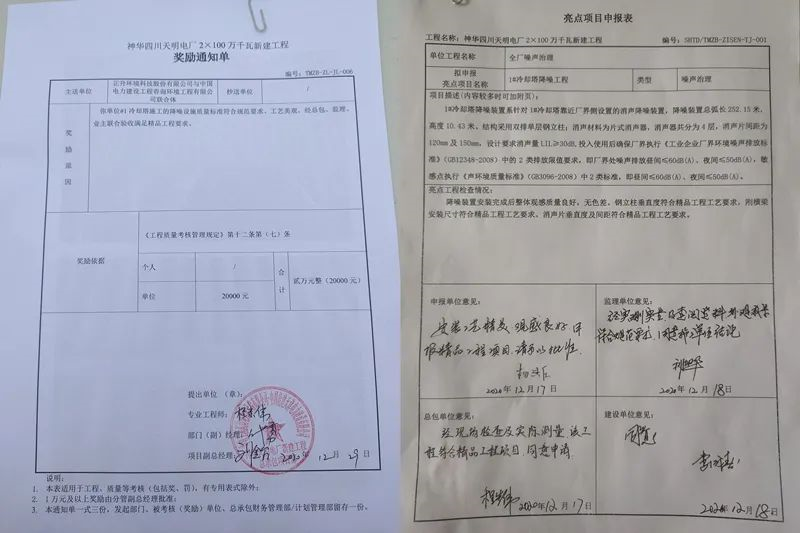 神华四川天明电厂2×100万千瓦新建工程
奖励通知单
编号：TMZB-ZL-JL-006
主送单位
正升环境科技股份有限公司与中国
电力建设工程咨询环境工程有限公
司联合体
抄送单位
/
奖励原因
你单位#1冷却塔施工的降噪设施质量标准符合规范要求、工艺美观，经总包、监理、
业主联合验收满足精品工程要求。
奖励依据
《工程质量考核管理规定》第十二条第（七）条
个人
/
单位
20000元
合计
贰万元整（20000元）
提出单位（章）：
专业工程师：
部门（副）经理：
项目副总经理：
2020年12月29日
说明：
1. 本表适用于工程、质量等考核（包括奖、罚），有专用表式除外；
2. 1万元及以上奖励由分管副总经理批准；
3. 本通知单一式三份，发起部门、被考核（奖励）单位、总承包财务管理部/计划管理部留存一份。
亮点项目申报表
工程名称：神华四川天明电厂2×100万千瓦新建工程
编号：SHTD/TMZB-ZISEN-TJ-001
单位工程名称
全厂噪声治理
拟申报
亮点工程名称
1#冷却塔降噪工程
类型
噪声治理
项目描述(内容较多时可加附页)：
1#冷却塔降噪装置系针对1#冷却塔靠近厂界侧设置的消声降噪装置，降噪装置总弧长252.15米，
高度10.43米。结构采用双排单层钢立柱；消声材料为片式消声器，消声器共分为4层，消声片间距为
120mm及150mm，设计要求消声量LIL≥30dB，投入使用后确保厂界执行《工业企业厂界环境噪声排放标
准》(GB12348-2008)中的2类排放限值要求，即厂界处噪声排放昼间≤60dB(A)、夜间≤50dB(A)，敏
感点执行《声环境质量标准》(GB3096-2008)中2类标准，即昼间≤60dB(A)、夜间≤50dB(A)。
亮点工程检查情况：
降噪装置安装完成后整体观感质量良好，无色差。钢立柱垂直度符合精品工程工艺要求，刚横梁
安装尺寸符合精品工程工艺要求。消声片垂直度及间距符合精品工程工艺要求。
申报单位意见：
安装工艺精美，观感良好 申
报精品工程项目，请予以批准。
2020年12月17日
监理单位意见：
经实测实量及查阅资料外观质量
符合规范要求，同意
2020年12月18日
总包单位意见：
经现场检查及实际测量，该工
程符合精品工程项目，同意申请。
2020年12月17日
建设单位意见：
同意
2020年12月18日